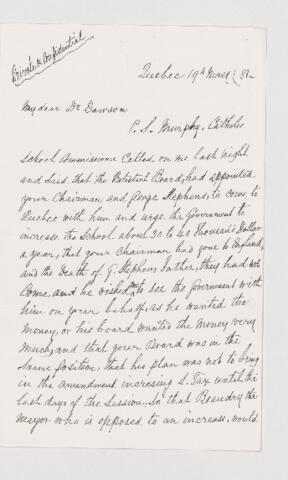 Private & Confidential
Quebec 19th May /82
My dear Dr Dawson
P. S. Murphy, Catholic
School Commissioner Called on me last night
and said that the Protestant Board, had appointed
your Chairman, and George Stephens, to come to
Quebec with him and urge the Government to
increase the School about 30 to 40 Thousand Dollars
a year, that your Chairman had gone to England,
and the Death of G. Stephens Father, they had not
Come, and he wished me to see the Government with
him on your behalf, as he wanted the
Money, or his board wanted the Money very
Much, and that your Board was in the
Same position, that his plan was not to bring
in the amendment increasing S. Tax until the
last days of the Session, So that Beaudry the
Mayor who is opposed to an increase, would